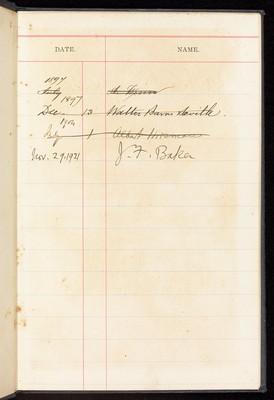 DATE. NAME.
1897
July
1897
Dec. 13 Walter Barns Saville.
July 1 Albert
Nov. 29, 1921 J. F. Baker